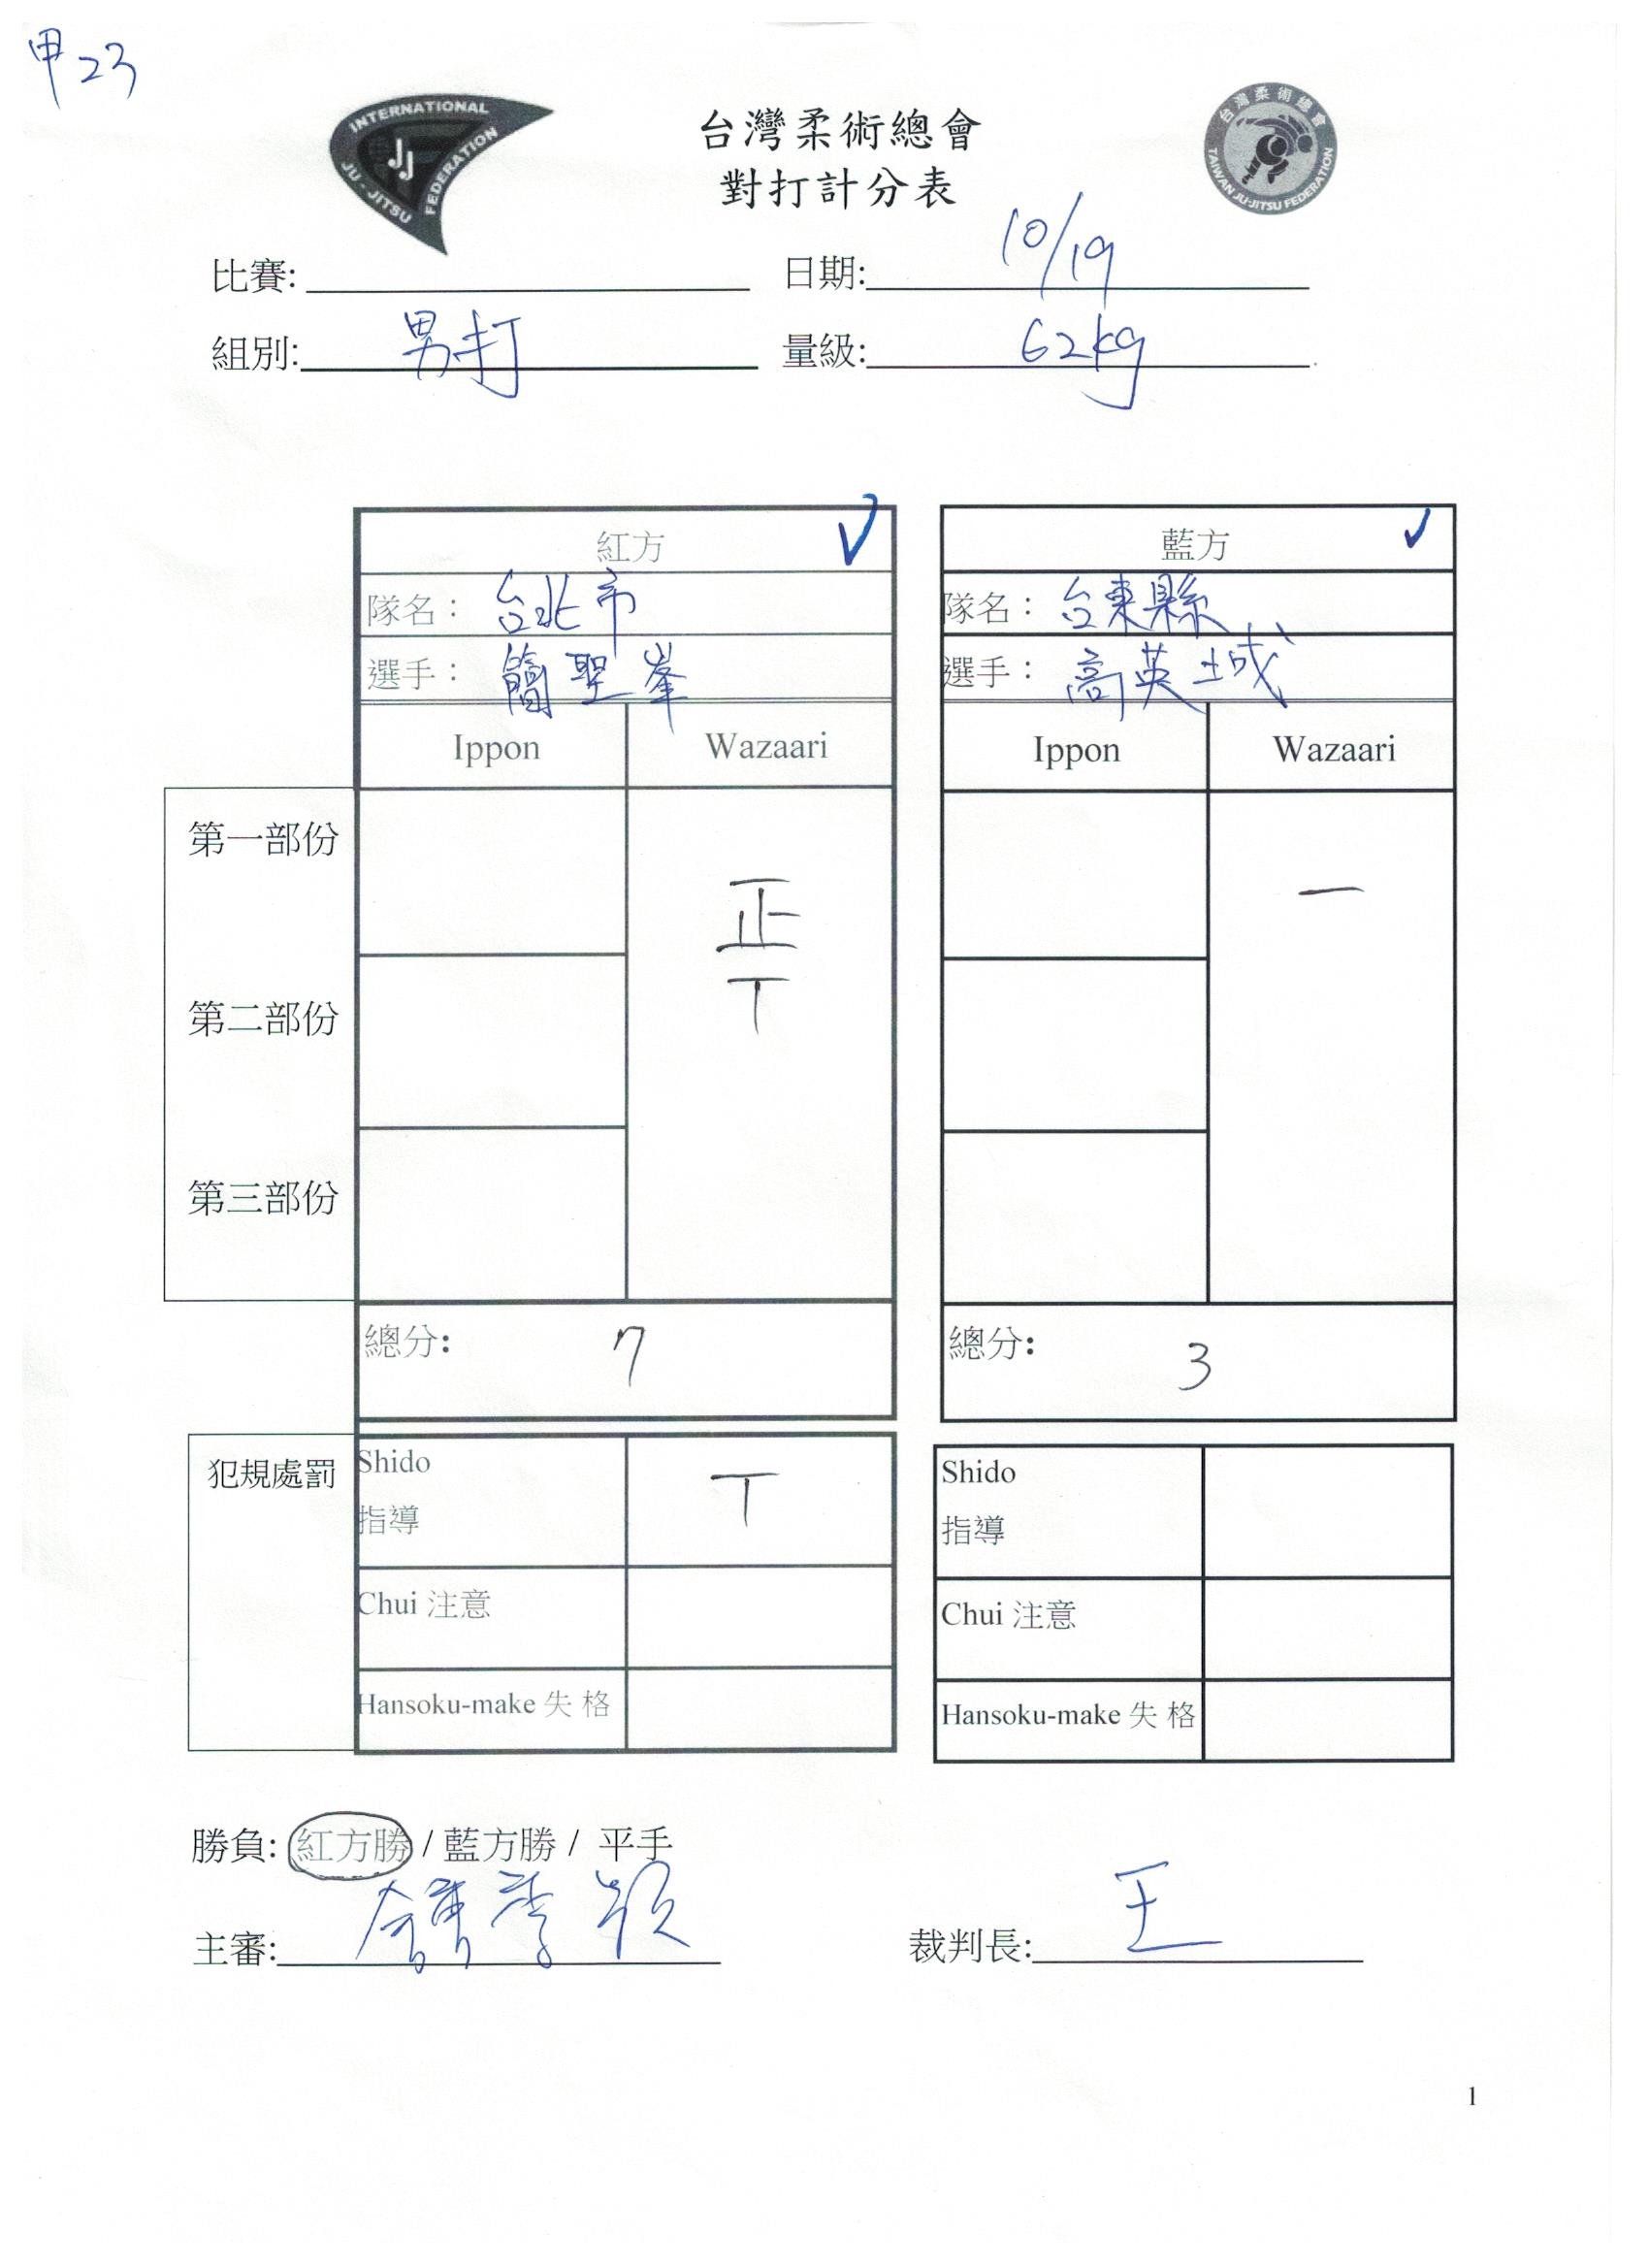 甲23
INTERNATIONAL
JU-JITSU FEDERATION
JJ
台灣柔術總會
TAIWAN JU-JITSU FEDERATION
台灣柔術總會
對打計分表
比賽: 日期: 10/19
組別: 男打 量級: 62kg
紅方 ✓ 藍方 ✓
隊名: 台北市 隊名: 台東縣
選手: 簡聖峯 選手: 高英城
Ippon Wazaari Ippon Wazaari
第一部份
正 一
第二部份 丅
第三部份
總分: 7 總分: 3
犯規處罰 Shido 丅 Shido
指導 指導
Chui 注意 Chui 注意
Hansoku-make 失 格 Hansoku-make 失 格
勝負: 紅方勝 / 藍方勝 / 平手
主審: 鍾季穎 裁判長: 王
1